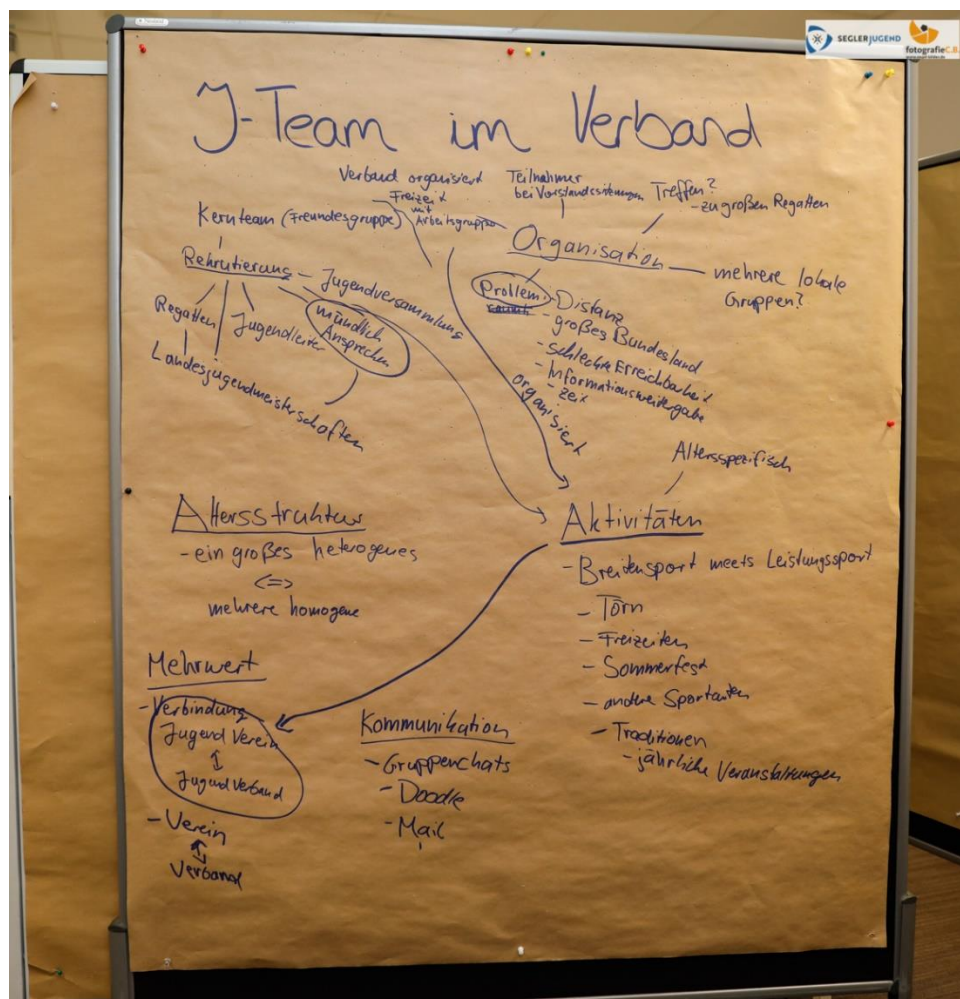 SEGLERJUGEND
fotografieC.B.
J-Team im Verband
Verband organisiert
Freizeit
mit
Arbeitsgruppe
Teilnahmer
bei Vorstandssitzungen
Treffen?
- zu großen Regatten
Kernteam (Freundesgruppe)
Organisation
mehrere lokale
Gruppen?
Rekrutierung
- Jugendversammlung
mündlich
Ansprechen
Regatten
Jugendleiter
Landesjugendmeisterschaften
Problem:
- Distanz
- großes Bundesland
- schlechte Erreichbarkeit
- Informationsweitergabe
- Zeit
organisiert
Altersspezifisch
Altersstruktur
- ein großes heterogenes
<=>
mehrere homogene
Aktivitäten
- Breitensport meets Leistungssport
- Törn
- Freizeiten
- Sommerfest
- andere Sportarten
- Traditionen
- jährliche Veranstaltungen
Mehrwert
- Verbindung
Jugend Verein
↕
Jugend Verband
- Verein
↕
Verband
Kommunikation
- Gruppenchats
- Doodle
- Mail